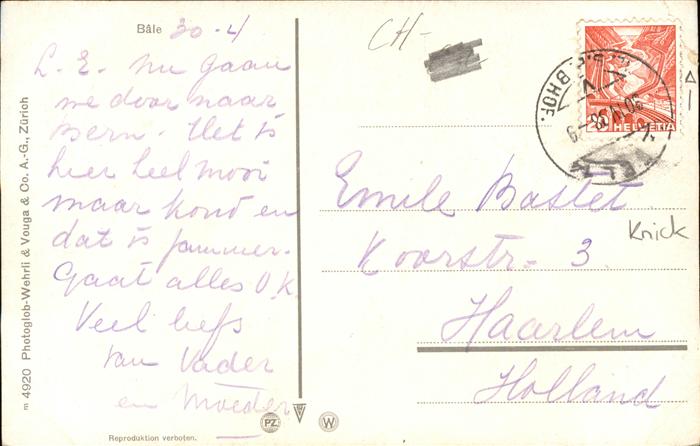 Bâle 30-4
L. E. Nu gaan
we door naar
Bern. Het is
hier heel mooi
maar koud en
dat is jammer.
Gaat alles O.K.
Veel liefs
van Vader
en Moeder
CH-
HELVETIA
BHOF.
Emile Bastet
Koorstr. 3
Haarlem
Holland
Knick
m 4920 Photoglob-Wehrli & Vouga & Co. A.-G., Zürich
PZ
W
Reproduktion verboten.